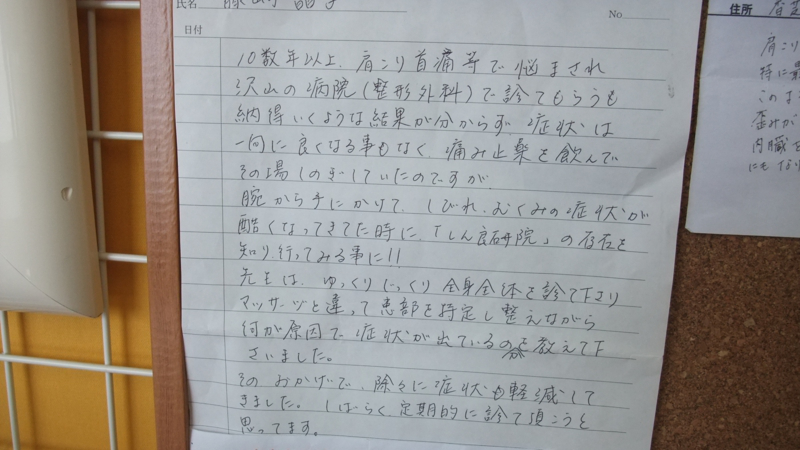 氏名
No.
日付
10数年以上、肩こり首痛等で悩まされ
沢山の病院(整形外科)で診てもらうも
納得いくような結果が分からず、症状は
一向に良くなる事もなく、痛み止薬を飲んで
その場しのぎしていたのですが、
腕から手にかけて、しびれ、むくみの症状が
酷くなってきてた時に、「しん良研院」の存在を
知り、行ってみる事に!!
先生は、ゆっくりじっくり全身全体を診て下さり
マッサージと違って患部を特定し整えながら
何が原因で症状が出ているのか教えて下
さいました。
そのおかげで、除々に症状も軽減して
きました。しばらく定期的に診て頂こうと
思ってます。
住所
肩こり
特に
このま
歪みが
内臓
にもな